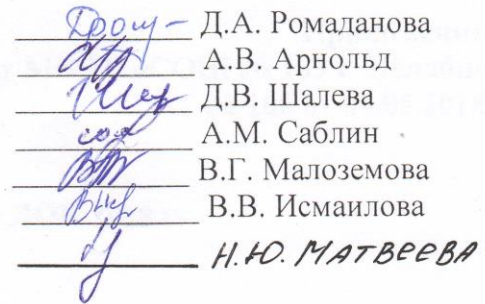 Д.А. Ромаданова
А.В. Арнольд
Д.В. Шалева
А.М. Саблин
В.Г. Малоземова
В.В. Исмаилова
Н.Ю. МАТВЕЕВА